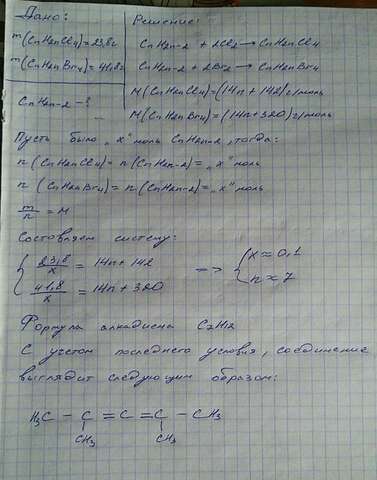 Дано:
Решение:
m(CnH2nCl4)=23,8г
CnH2n-2 + 2Cl2 → CnH2nCl4
m(CnH2nBr4)=41,8г
CnH2n-2 + 2Br2 → CnH2nBr4
CnH2n-2 - ?
M(CnH2nCl4)=(14n+142)г/моль
M(CnH2nBr4)=(14n+320)г/моль
Пусть было "x" моль CnH2n-2, тогда:
n(CnH2nCl4) = n(CnH2n-2) = "x" моль
n(CnH2nBr4) = n(CnH2n-2) = "x" моль
m/n = M
Составляем систему:
{ 23,8/x = 14n + 142 => { x ≈ 0,1
{ 41,8/x = 14n + 320 { n ≈ 7
Формула алкадиена C7H12
С учетом последнего условия, соединение
выглядит следующим образом:
H3C - C = C = C - CH3
CH3 CH3